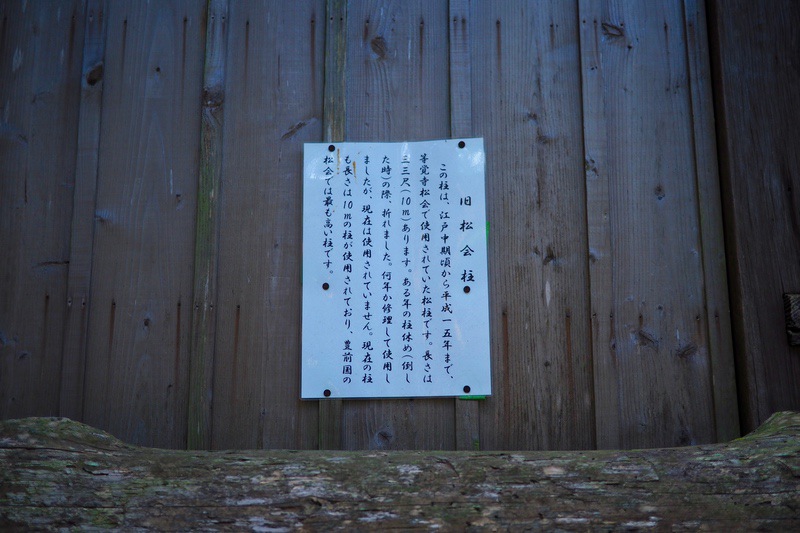 旧松会柱
この柱は、江戸中期頃から平成一五年まで、
等覚寺松会で使用されていた松柱です。長さは
三三尺(10m)あります。ある年の柱休め(倒し
た時)の際、折れました。何年か修理して使用し
ましたが、現在は使用されていません。現在の柱
も長さは10mの柱が使用されており、豊前国の
松会では最も高い柱です。